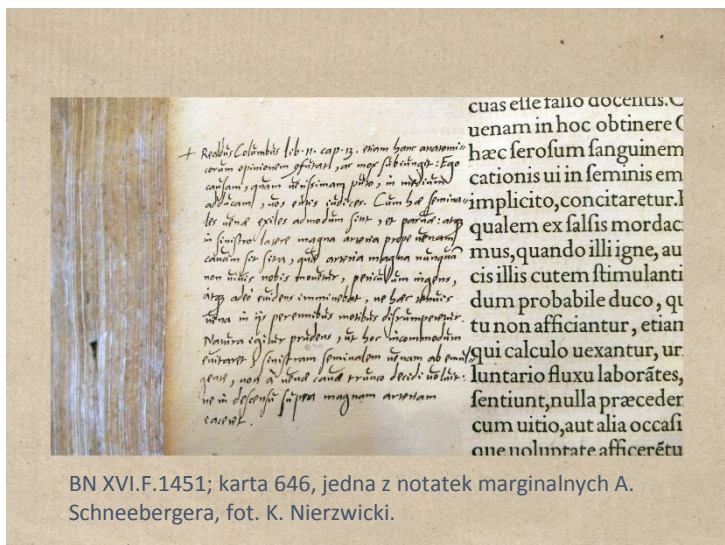 + Realdus Columbus lib. 11. cap. 13. etiam hanc anatomi-
corum opinionem cõfutat, ac mox subiungit: Ego
causam, quam uerissimam puto, in medium
adducam, uos eritis iudices. Cum hæ semina-
les uenæ exiles admodum sint, et paruæ: atq
in sinistro latere magna arteria prope uenam
cauam sit sita, quæ arteria magna nunquã
non uiuis nobis mouetur, periculum ingens,
atq adeo euidens imminebat, ne hæc tenuis
uena in ijs perennibus motibus disrumperetur.
Natura igitur prudens, ut hoc incommodum
euitaret, sinistram seminalem uenam ab emul-
gente, non à uenæ cauæ trunco decidi uoluit:
ne in descensu supra magnam arteriam
iaceret.
cuas esse falso docentis.C
uenam in hoc obtinere
hæc serosum sanguinem
cationis ui in seminis em
implicito,concitaretur.
qualem ex salsis mordac
mus,quando illi igne, au
cis illis cutem stimulanti
dum probabile duco, qu
tu non afficiantur, etian
qui calculo uexantur, ur
luntario fluxu laborãtes,
sentiunt,nulla præceder
cum uitio,aut alia occasi
que uoluptate afficerẽtu
BN XVI.F.1451; karta 646, jedna z notatek marginalnych A.
Schneebergera, fot. K. Nierzwicki.